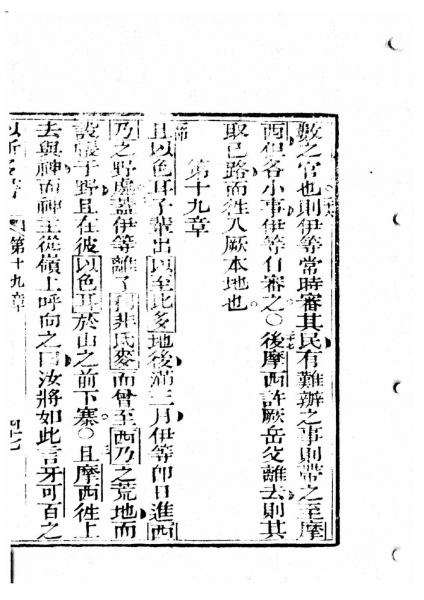 數之官也則伊等常時審其民有難辦之事則帶之至摩
西但各小事伊等自審之〇後摩西許厥岳父離去則其
取己路而徃入厥本地也
第十九章
且以色耳子輩出以至比多地後滿三月伊等卽日進西
乃之野處蓋伊等離了非氏麥而曾至西乃之荒地而
設帳于野且在彼以色耳於山之前下寨〇且摩西徃上
去與神而神主從嶺上呼向之曰汝將如此言牙可百之
第十九章